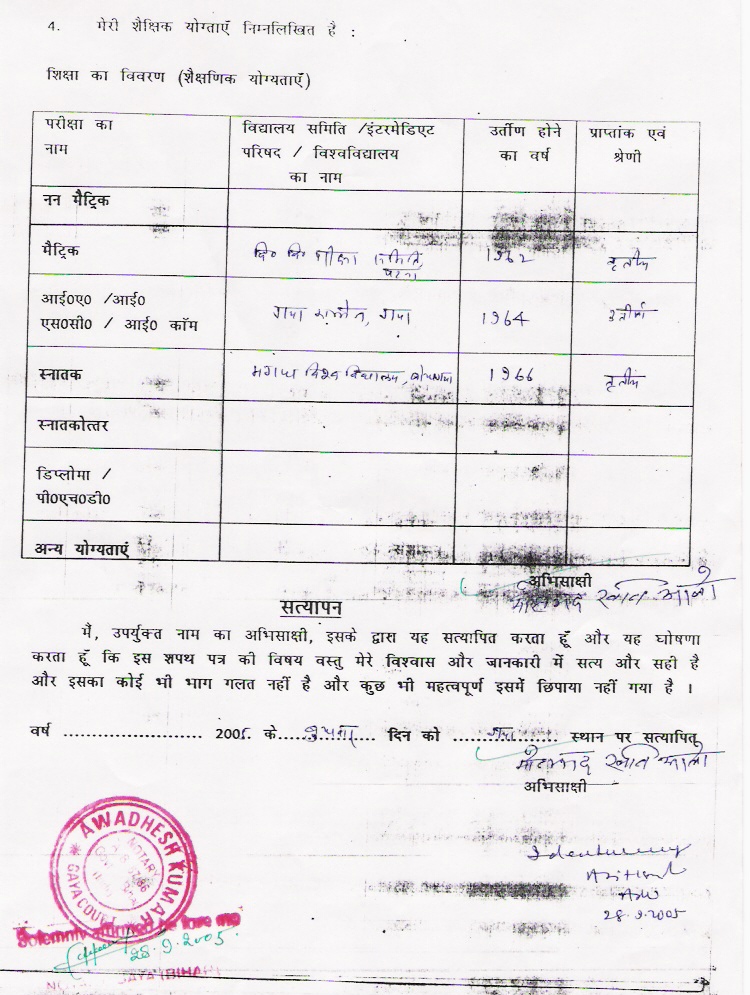 4. मेरी शैक्षिक योग्ताएँ निम्नलिखित है :
शिक्षा का विवरण (शैक्षणिक योग्यताएँ)
परीक्षा का नाम
विद्यालय समिति /इंटरमेडिएट
परिषद / विश्वविद्यालय
का नाम
उर्तीण होने
का वर्ष
प्राप्तांक एवं
श्रेणी
नन मैट्रिक
मैट्रिक
समिति,
पटना
1962
तृतीय
आई0ए0 /आई0
एस0सी0 / आई0 कॉम
गया कालेज, गया
1964
उत्तीर्ण
स्नातक
मगध विश्व विद्यालय, बोधगया
1966
तृतीय
स्नातकोत्तर
डिप्लोमा /
पी0एच0डी0
अन्य योग्यताएं
अभिसाक्षी
सत्यापन
मैं, उपर्युक्त नाम का अभिसाक्षी, इसके द्वारा यह सत्यापित करता हूँ और यह घोषणा
करता हूँ कि इस शपथ पत्र की विषय वस्तु मेरे विश्वास और जानकारी में सत्य और सही है
और इसका कोई भी भाग गलत नहीं है और कुछ भी महत्वपूर्ण इसमें छिपाया नहीं गया है ।
वर्ष ........................ 2005 के................ दिन को ................ स्थान पर सत्यापित
अभिसाक्षी
AWADHESH KUMAR
NOTARY
GAYA COURT
28.9.2005
Solemnly affirmed before me
28.9.2005
GAYA (BIHAR)